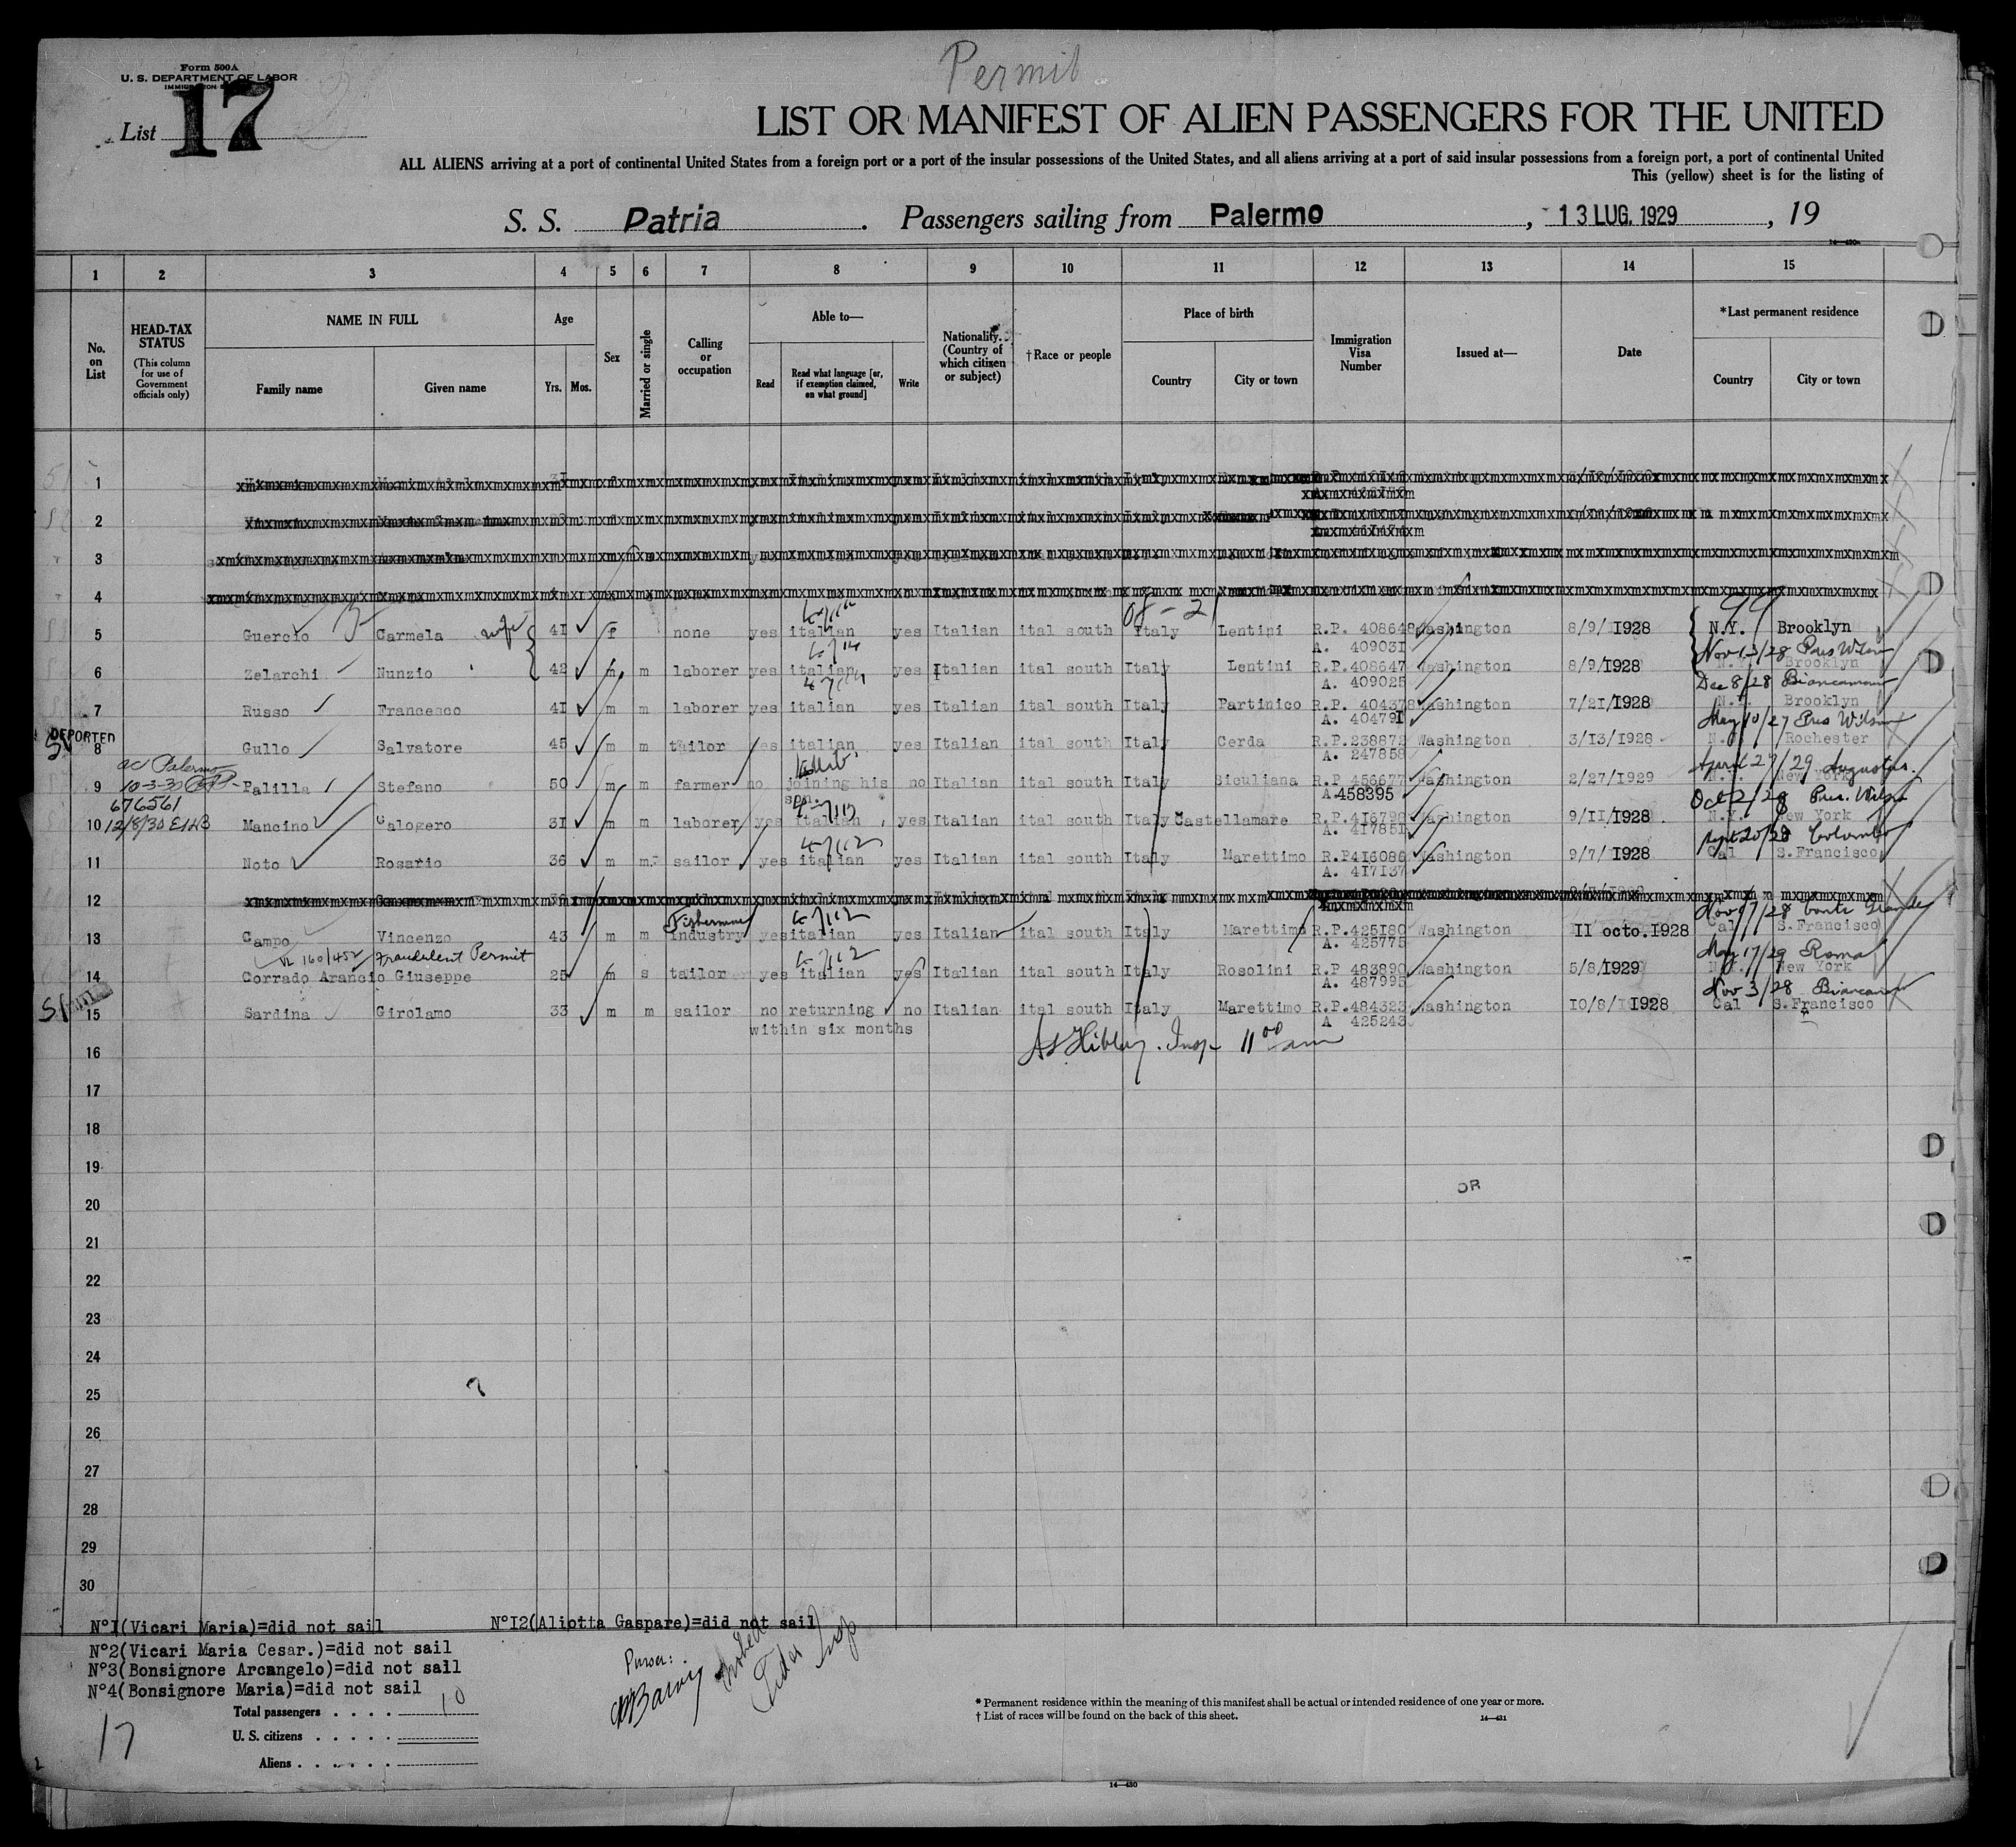 Permit
Form 500A
U. S. DEPARTMENT OF LABOR
List 17
LIST OR MANIFEST OF ALIEN PASSENGERS FOR THE UNITED
ALL ALIENS arriving at a port of continental United States from a foreign port or a port of the insular possessions of the United States, and all aliens arriving at a port of said insular possessions from a foreign port, a port of continental United
This (yellow) sheet is for the listing of
S. S. Patria. Passengers sailing from Palermo, 13 LUG. 1929, 19
1 2 3 4 5 6 7 8 9 10 11 12 13 14 15
No. on List
HEAD-TAX STATUS (This column for use of Government officials only)
NAME IN FULL
Family name Given name
Age
Yrs. Mos.
Sex
Married or single
Calling or occupation
Able to—
Read Read what language [or, if exemption claimed, on what ground] Write
Nationality. (Country of which citizen or subject)
†Race or people
Place of birth
Country City or town
Immigration Visa Number
Issued at—
Date
*Last permanent residence
Country City or town
1
2
3
4
08-2 99
5 Guercio Carmela wife 41 f none yes italian yes Italian ital south Italy Lentini R.P. 408648 Washington 8/9/1928 N.Y. Brooklyn
A. 409031 Nov 13/28 Pres Wilson
6 Zelarchi Nunzio 42 m m laborer yes italian yes Italian ital south Italy Lentini R.P. 408647 Washington 8/9/1928 N.Y. Brooklyn
A. 409025 Dec 8/28 Biancamano
7 Russo Francesco 41 m m laborer yes italian yes Italian ital south Italy Partinico R.P. 404378 Washington 7/21/1928 N.Y. Brooklyn
A. 404791 May 10/27 Pres Wilson
DEPORTED
8 Gullo Salvatore 45 m m tailor yes italian ital south Italy Cerda R.P. 238872 Washington 3/13/1928 N.Y. Rochester
A. 247858 April 27/29 Augustus.
Palermo
10-3-30
9 Palilla Stefano 50 m m farmer no joining his son. no Italian ital south Italy Siculiana R.P. 456677 Washington 2/27/1929 N.Y. New York
A. 458395 Oct 2/28 Pres. Wilson
676561
10 12/8/30 Mancino Calogero 31 m m laborer yes italian yes Italian ital south Italy Castellamare R.P. 416798 Washington 9/11/1928 N.Y. New York
A. 417851 Sept 20/28 Colombo
11 Noto Rosario 36 m m sailor yes italian yes Italian ital south Italy Marettimo R.P. 416086 Washington 9/7/1928 Cal S.Francisco
A. 417137
12
Nov 17/28 Conte Grande
Fishermen
13 Campo Vincenzo 43 m m industry yes italian yes Italian ital south Italy Marettimo R.P. 425180 Washington 11 octo.1928 Cal S.Francisco
A. 425775 May 17/29 Roma
VL 160/452 Fraudulent Permit
14 Corrado Arancio Giuseppe 25 m s tailor yes italian yes Italian ital south Italy Rosolini R.P. 483890 Washington 5/8/1929 N.Y. New York
A. 487995 Nov 3/28 Biancamano
SI
15 Sardina Girolamo 33 m m sailor no returning within six months no Italian ital south Italy Marettimo R.P. 484323 Washington 10/8/1928 Cal S.Francisco
A 425243
16 Insp 11 00 am
17
18
19
20
OR
21
22
23
24
25
26
27
28
29
30
N°1(Vicari Maria)=did not sail N°12(Aliotta Gaspare)=did not sail
N°2(Vicari Maria Cesar.)=did not sail
N°3(Bonsignore Arcangelo)=did not sail
N°4(Bonsignore Maria)=did not sail
Purser:
Total passengers . . . . 10
U. S. citizens . . . . .
Aliens . . . . . .
17
* Permanent residence within the meaning of this manifest shall be actual or intended residence of one year or more.
† List of races will be found on the back of this sheet.
14—431
14—430